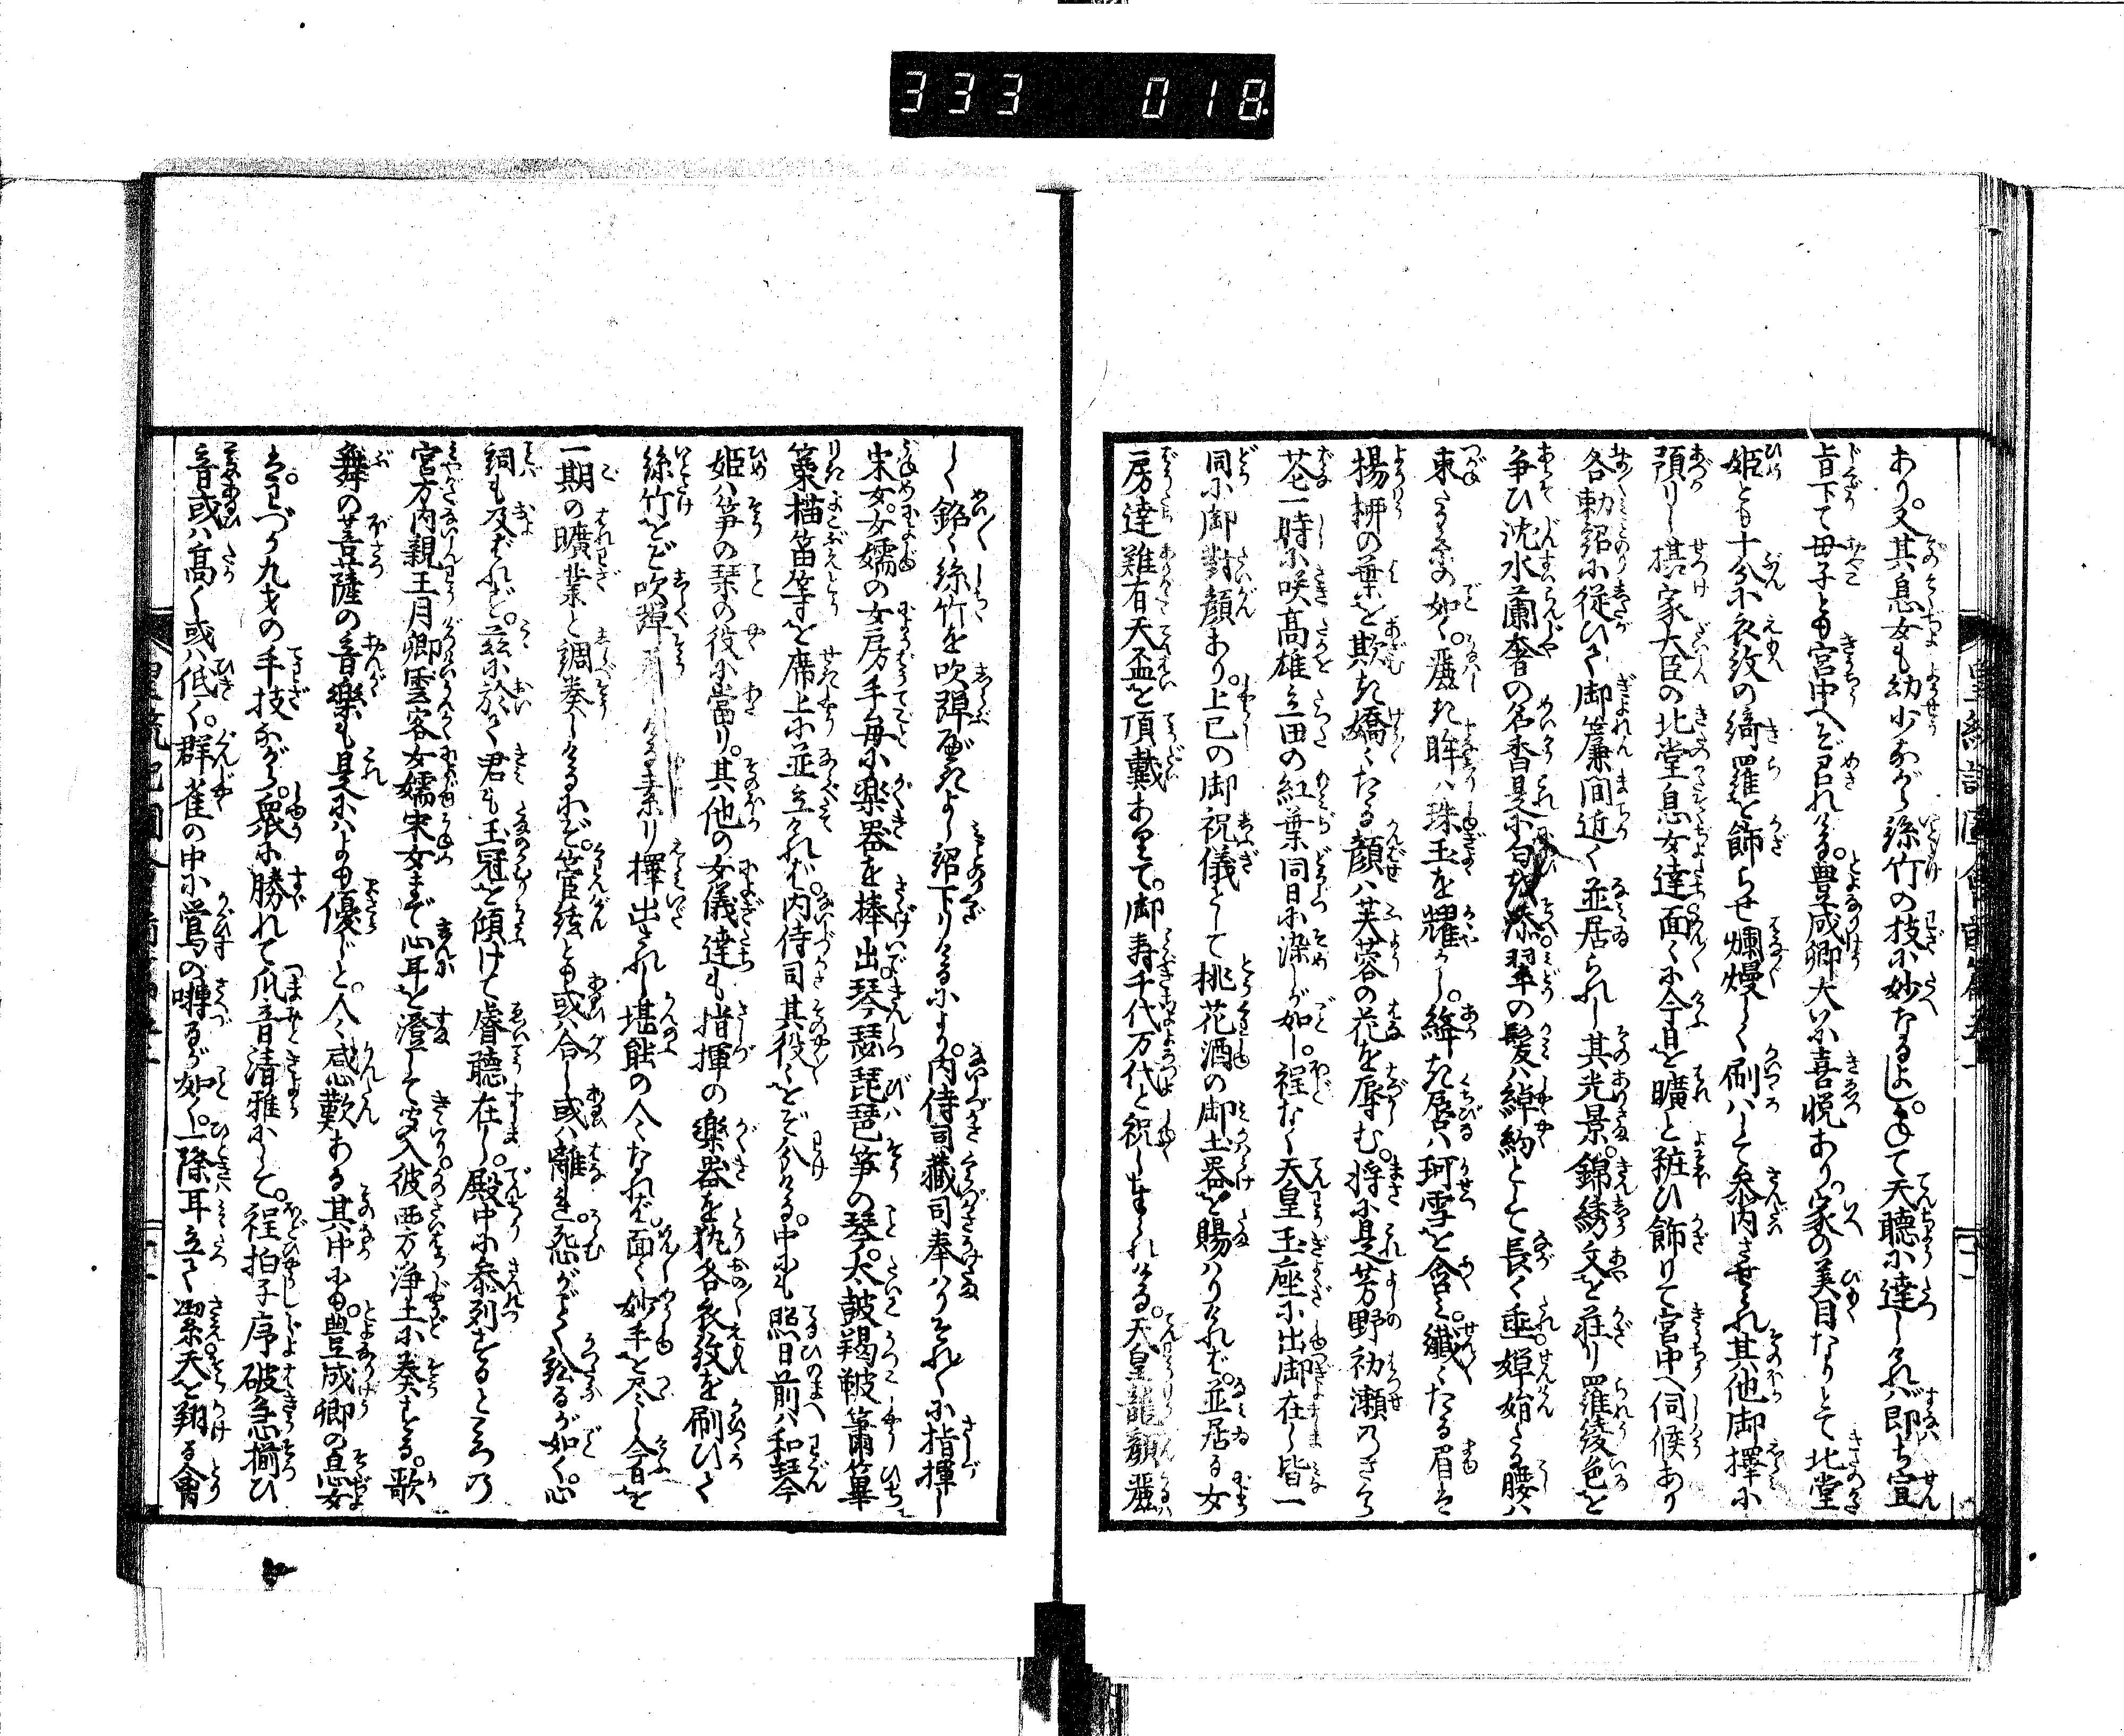 333 018
あり。又其息女も幼少ながら絲竹の技に妙なるよし。かねて天聴に達しければ即ち宣
旨下て母子とも宮中へぞ召れける。豊成卿大いに喜悦あり。家の美目なりとて北堂
姫とも十分に衣紋の綺羅を飾らせ爛熳しく刷はして参内させられ其他御擇に
預りし摂家大臣の北堂息女達面〻に今日を曠と粧ひ飾りて宮中へ伺候あり
各勅紹に従ひて御簾間近く並居られし其光景。錦綉文を荘り羅綾色を
争ひ沈水蘭奢の名香是に匂を添。翠の髪は綽約として長く垂。嬋娟たる腰は
束たる糸の如く。麗き眸は珠玉を耀かし。絳き唇は珂雪を含み。纖〻たる眉は
楊柳の葉を欺き嬌〻たる顔は芙蓉の花を辱む。将に是芳野初瀬のさくら
花一時に咲高雄立田の紅葉同日に染しが如し。程なく天皇玉座に出御在し皆一
同に御對顔あり。上巳の御祝儀として桃花酒の御土器を賜はりければ。並居る女
房達難有天盃を頂戴ありて。御寿千代万代と祝しまゐらせける。天皇龍顔麗
しく銘〻絲竹を吹彈べきよし詔下りけるにより。内侍司藏司奉はりそれ〳〵に指揮し
采女。女嬬の女房手毎に楽器を捧出琴瑟琵琶箏の琴。大皷羯皷簫篳
篥横笛等を席上に並立ければ。内侍司其役〻をぞ分ける。中にも照日前は和琴
姫は箏の琴の役に當り。其他の女儀達も指揮の楽器を執各衣紋を刷ひて
絲竹をぞ吹彈ける素り擇出されし堪能の人〻なれば。面〻妙手を尽し今日を
一期の曠業と調奏しけるほどに。管絃とも或は合し或は離れ。怨がごとく訟るが如く。心
詞も及ばれず。茲に於て君も玉冠を傾けて睿聴在し。殿中に参列せるところの
宮方内親王月卿雲客女嬬采女まで心耳を澄して聞入彼西方浄土に奏せる。歌
舞の菩薩の音樂も是にはよも優じと。人〻感歎ある其中にも。豊成卿の息女
は。わづか九才の手技ながら。衆に勝れて爪音清雅にして。程拍子序破急揃ひ
音或は髙く或は低く。群雀の中に鴬の囀るが如く。一際耳立て澄。天を翔る禽